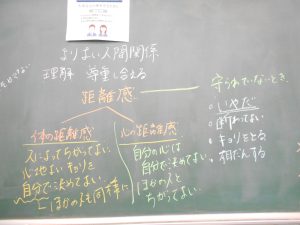 よりよい人間関係
理解 尊重し合える
距離感
体の距離感
人によってちがってよい
心地よいキョリを
自分で決めてよい
ほかの人も同様に
心の距離感
自分の心は
自分で決めてよい
ほかの人と
ちがってよい
守られていないとき
いやだ
断わってよい
キョリをとる
相だんする